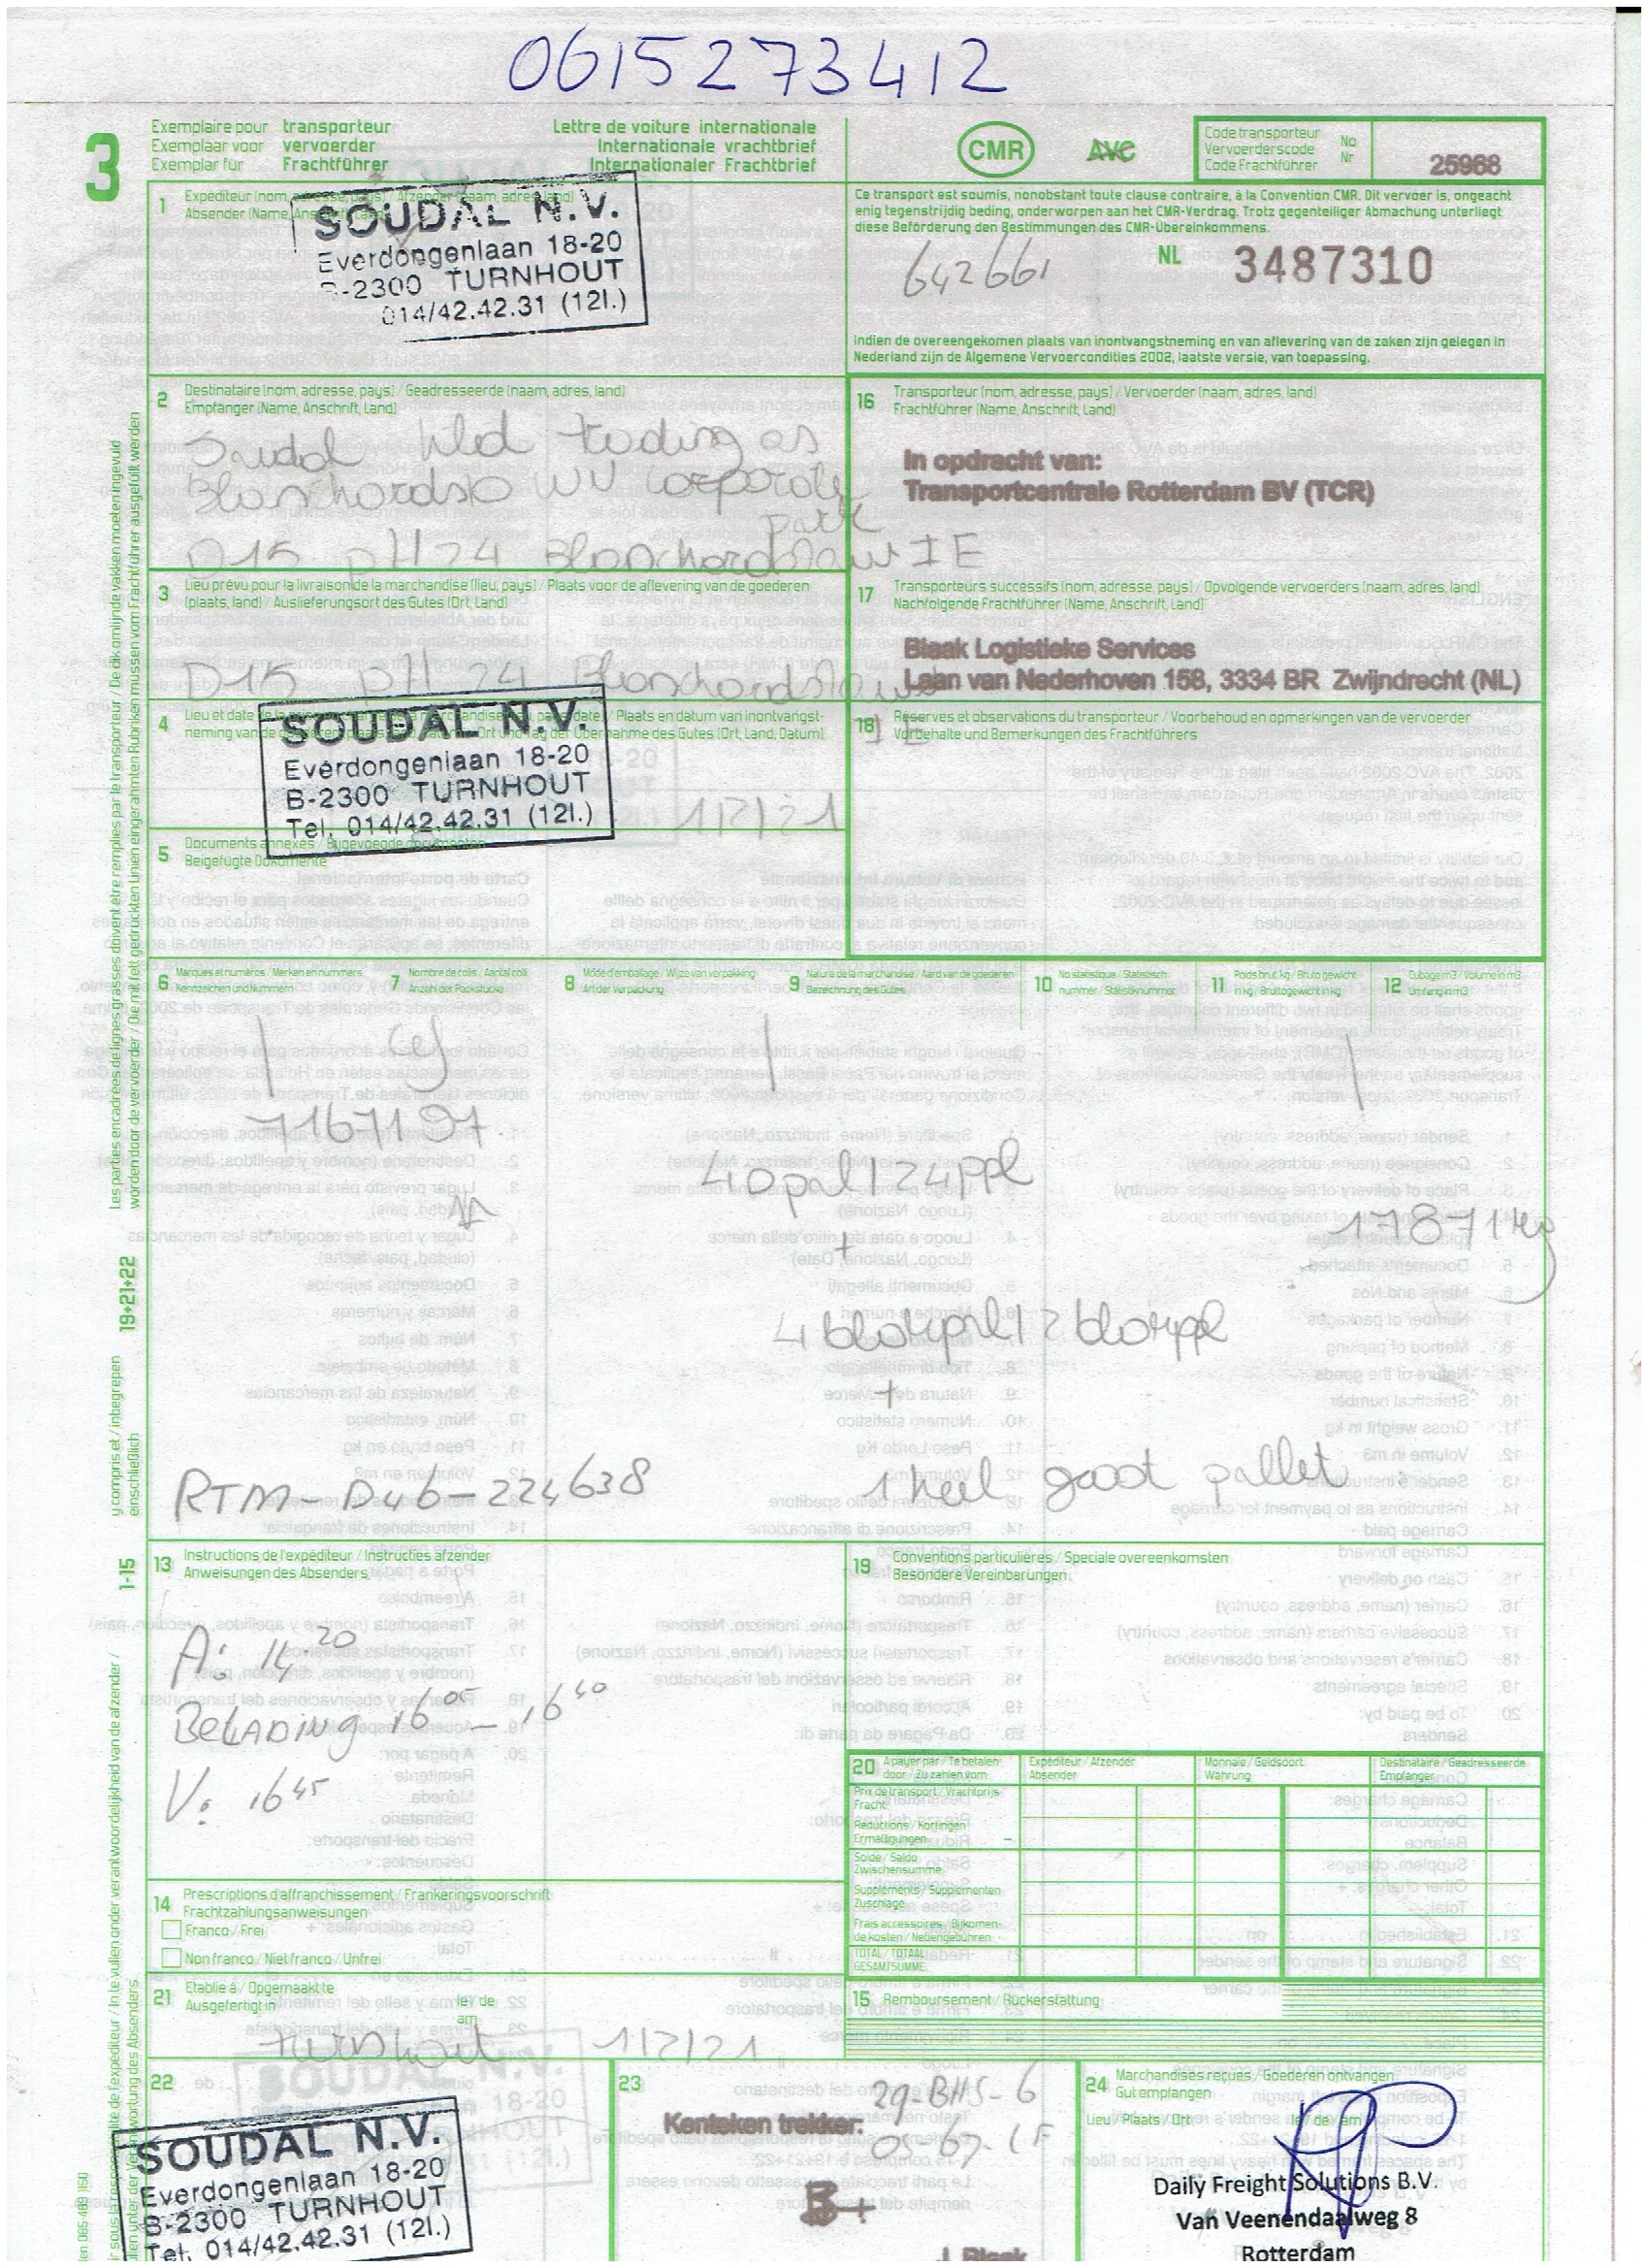 0615273412
3
Exemplaire pour transporteur
Exemplaar voor vervoerder
Exemplar für Frachtführer
Lettre de voiture internationale
Internationale vrachtbrief
Internationaler Frachtbrief
CMR
AVC
Code transporteur
Vervoerderscode
Code Frachtführer
No
Nr
25968
1 Expéditeur (nom, adresse, pays) / Afzender (naam, adres, land)
Absender (Name, Anschrift, Land)
SOUDAL N.V.
Everdongenlaan 18-20
B-2300 TURNHOUT
014/42.42.31 (12l.)
Ce transport est soumis, nonobstant toute clause contraire, à la Convention CMR. Dit vervoer is, ongeacht
enig tegenstrijdig beding, onderworpen aan het CMR-Verdrag. Trotz gegenteiliger Abmachung unterliegt
diese Beförderung den Bestimmungen des CMR-Übereinkommens.
642661
NL 3487310
Indien de overeengekomen plaats van inontvangstneming en van aflevering van de zaken zijn gelegen in
Nederland zijn de Algemene Vervoercondities 2002, laatste versie, van toepassing.
2 Destinataire (nom, adresse, pays) / Geadresseerde (naam, adres, land)
Empfänger (Name, Anschrift, Land)
Soudal trading as
Corporate
Park
D15 PH24 Blanchardstown IE
16 Transporteur (nom, adresse, pays) / Vervoerder (naam, adres, land)
Frachtführer (Name, Anschrift, Land)
In opdracht van:
Transportcentrale Rotterdam BV (TCR)
3 Lieu prévu pour la livraison de la marchandise (lieu, pays) / Plaats voor de aflevering van de goederen
(plaats, land) / Auslieferungsort des Gutes (Ort, Land)
D15 PH24 Blanchardstown
IE
17 Transporteurs successifs (nom, adresse, pays) / Opvolgende vervoerders (naam, adres, land)
Nachfolgende Frachtführer (Name, Anschrift, Land)
Blaak Logistieke Services
Laan van Nederhoven 158, 3334 BR Zwijndrecht (NL)
4 Lieu et date de la prise en charge de la marchandise (lieu, pays, date) / Plaats en datum van inontvangst-
neming van de goederen (plaats, land, datum) / Ort und Tag der Übernahme des Gutes (Ort, Land, Datum)
SOUDAL N.V.
Everdongenlaan 18-20
B-2300 TURNHOUT
Tel. 014/42.42.31 (12l.)
1/2/21
18 Réserves et observations du transporteur / Voorbehoud en opmerkingen van de vervoerder
Vorbehalte und Bemerkungen des Frachtführers
5 Documents annexés / Bijgevoegde documenten
Beigefügte Dokumente
6 Marques et numéros / Merken en nummers
Kennzeichen und Nummern
7 Nombre de colis / Aantal colli
Anzahl der Packstücke
8 Mode d'emballage / Wijze van verpakking
Art der Verpackung
9 Nature de la marchandise / Aard van de goederen
Bezeichnung des Gutes
10 No statistique / Statistisch
nummer / Statistiknummer
11 Poids brut, kg / Bruto gewicht
in kg / Bruttogewicht in kg
12 Cubage m3 / Volume in m3
Umfang in m3
ref
7167197
40pal/24ppl
17871kg
+
4 blokpal/2 blokppl
+
1 heel groot pallet
RTM-D46-224638
13 Instructions de l'expéditeur / Instructies afzender
Anweisungen des Absenders
A: 14 20
BELADING 16 05 - 16 40
V: 16 45
19 Conventions particulières / Speciale overeenkomsten
Besondere Vereinbarungen
20 A payer par / Te betalen
door / Zu zahlen vom
Expéditeur / Afzender
Absender
Monnaie / Geldsoort
Währung
Destinataire / Geadresseerde
Empfänger
Prix de transport / Vrachtprijs
Fracht
Réductions / Kortingen
Ermäßigungen -
Solde / Saldo
Zwischensumme
Suppléments / Supplementen
Zuschläge
Frais accessoires / Bijkomen-
de kosten / Nebengebühren +
TOTAL / TOTAAL
GESAMTSUMME
14 Prescriptions d'affranchissement / Frankeringsvoorschrift
Frachtzahlungsanweisungen
Franco / Frei
Non franco / Niet franco / Unfrei
21 Etablie à / Opgemaakt te
Ausgefertigt in
le / de
am
turnhout 1/2/21
15 Remboursement / Rückerstattung
22
SOUDAL N.V.
Everdongenlaan 18-20
B-2300 TURNHOUT
Tel. 014/42.42.31 (12l.)
23
Kenteken trekker:
29-BHS-6
B+
J. Blaak
24 Marchandises reçues / Goederen ontvangen
Gut empfangen
Lieu / Plaats / Ort le / de / am
Daily Freight Solutions B.V.
Van Veenendaalweg 8
Rotterdam
Les parties encadrées de lignes grasses doivent être remplies par le transporteur / De dik omlijnde vakken moeten ingevuld
worden door de vervoerder / Die mit fett gedruckten Linien eingerahmten Rubriken müssen vom Frachtführer ausgefüllt werden
19+21+22
y compris et / inbegrepen
einschließlich
1-15